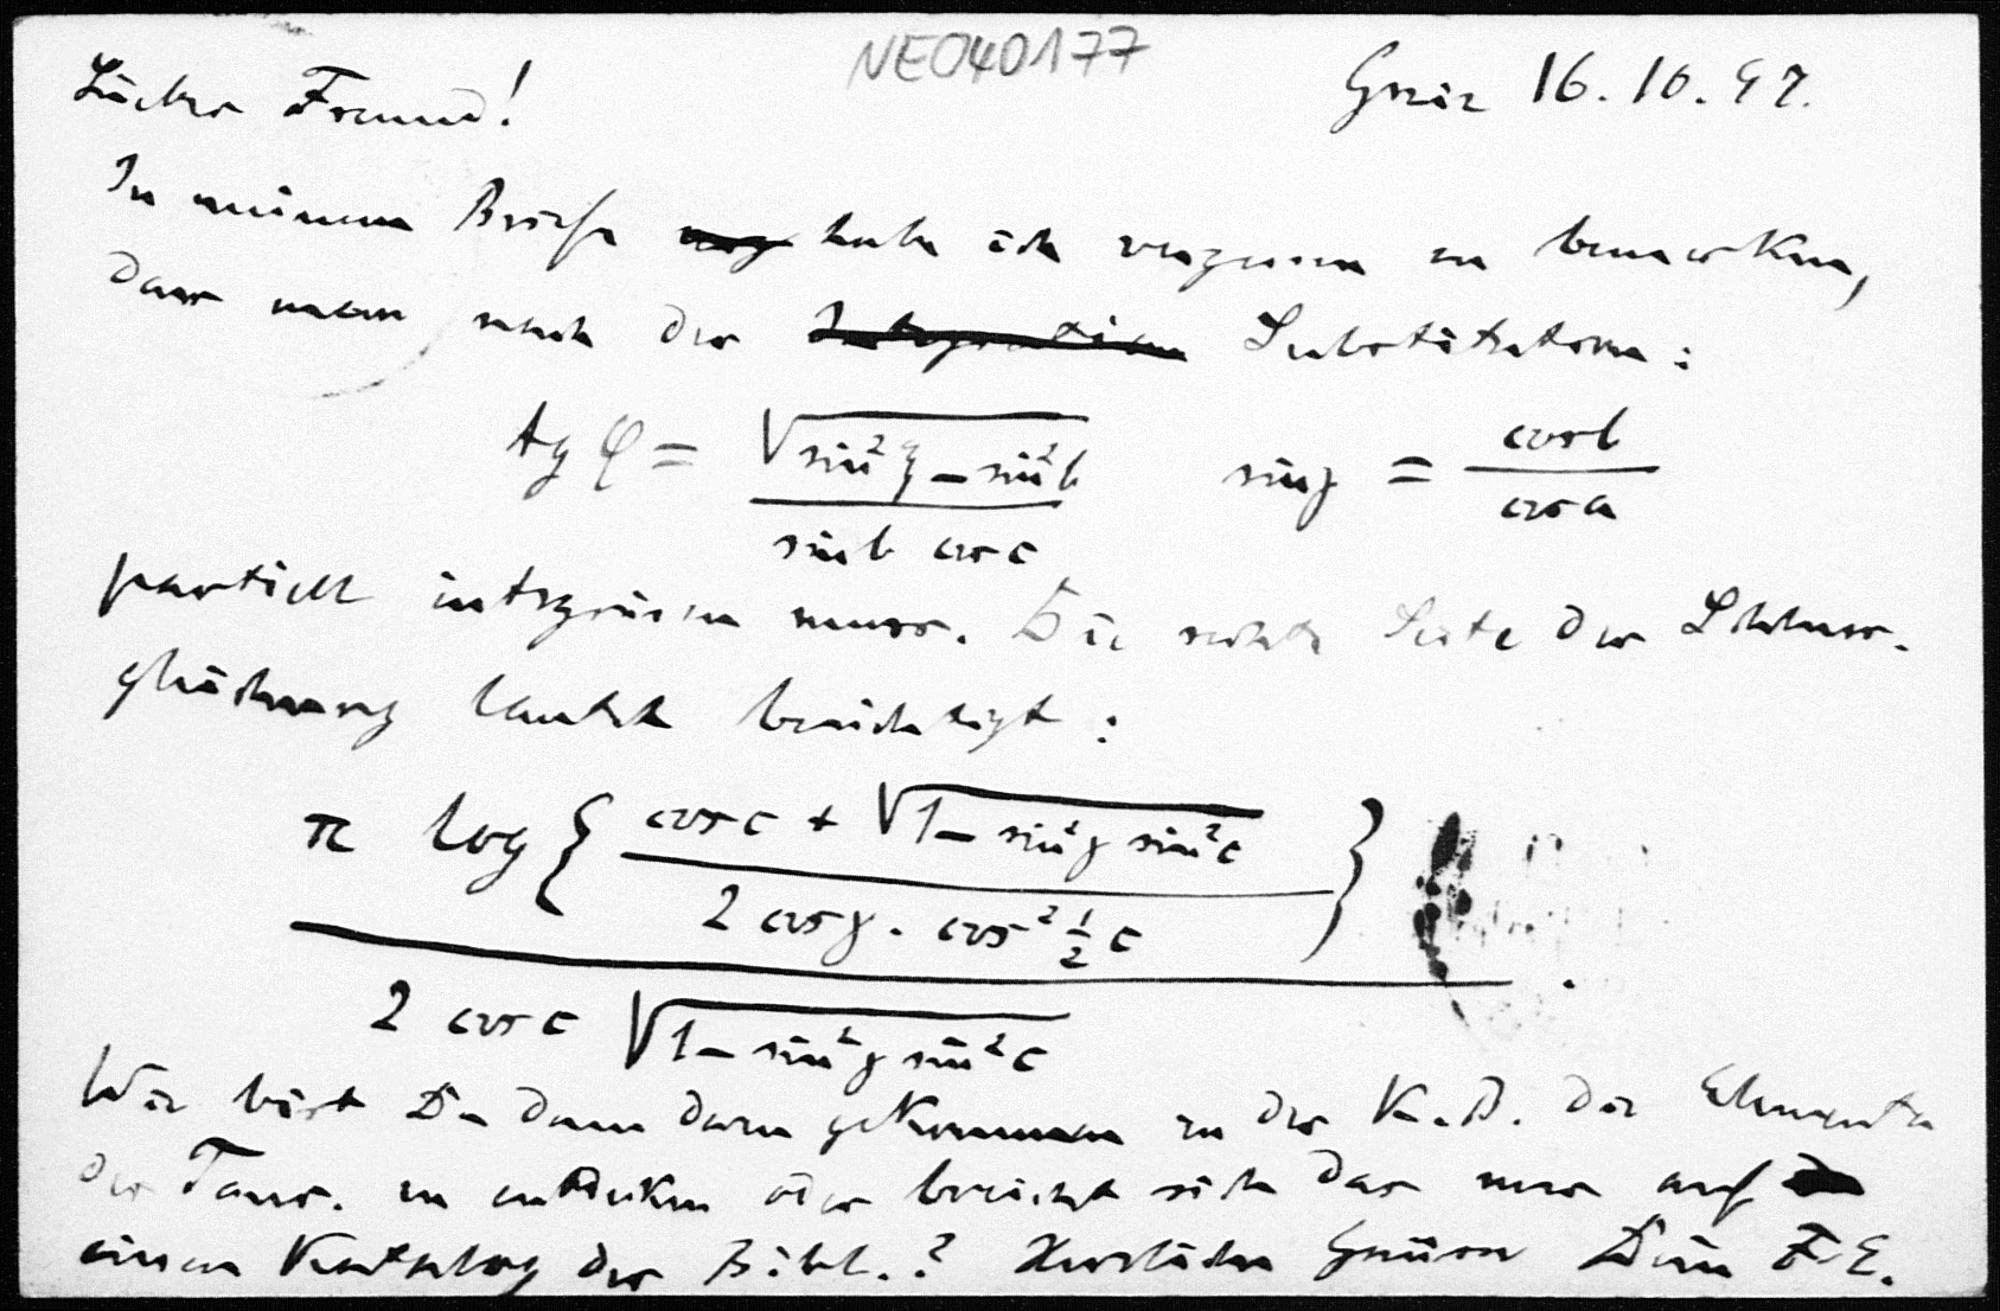 NEO40177
Lieber Freund!
Graz 16.10.97.
In meinem Briefe habe ich vergessen zu bemerken,
dass man nach der Integration Substitution:
tg φ = √(sin²ξ - sin²b) / (sin b cos c)    sin γ = cos b / cos a
partiell integrieren muss. Die rechte Seite der Schluss-
gleichung lautet berichtigt:
π log { (cos c + √(1 - sin²γ sin²c)) / (2 cos γ . cos² ½ c) } / (2 cos c √(1 - sin²γ sin²c)) .
Wie bist Du denn dazu gekommen in der K.B. die Elementa
der Taur. zu entdecken oder bezieht sich das nur auf
einen Katalog der Bibl.? Herzliche Grüsse Dein F.E.